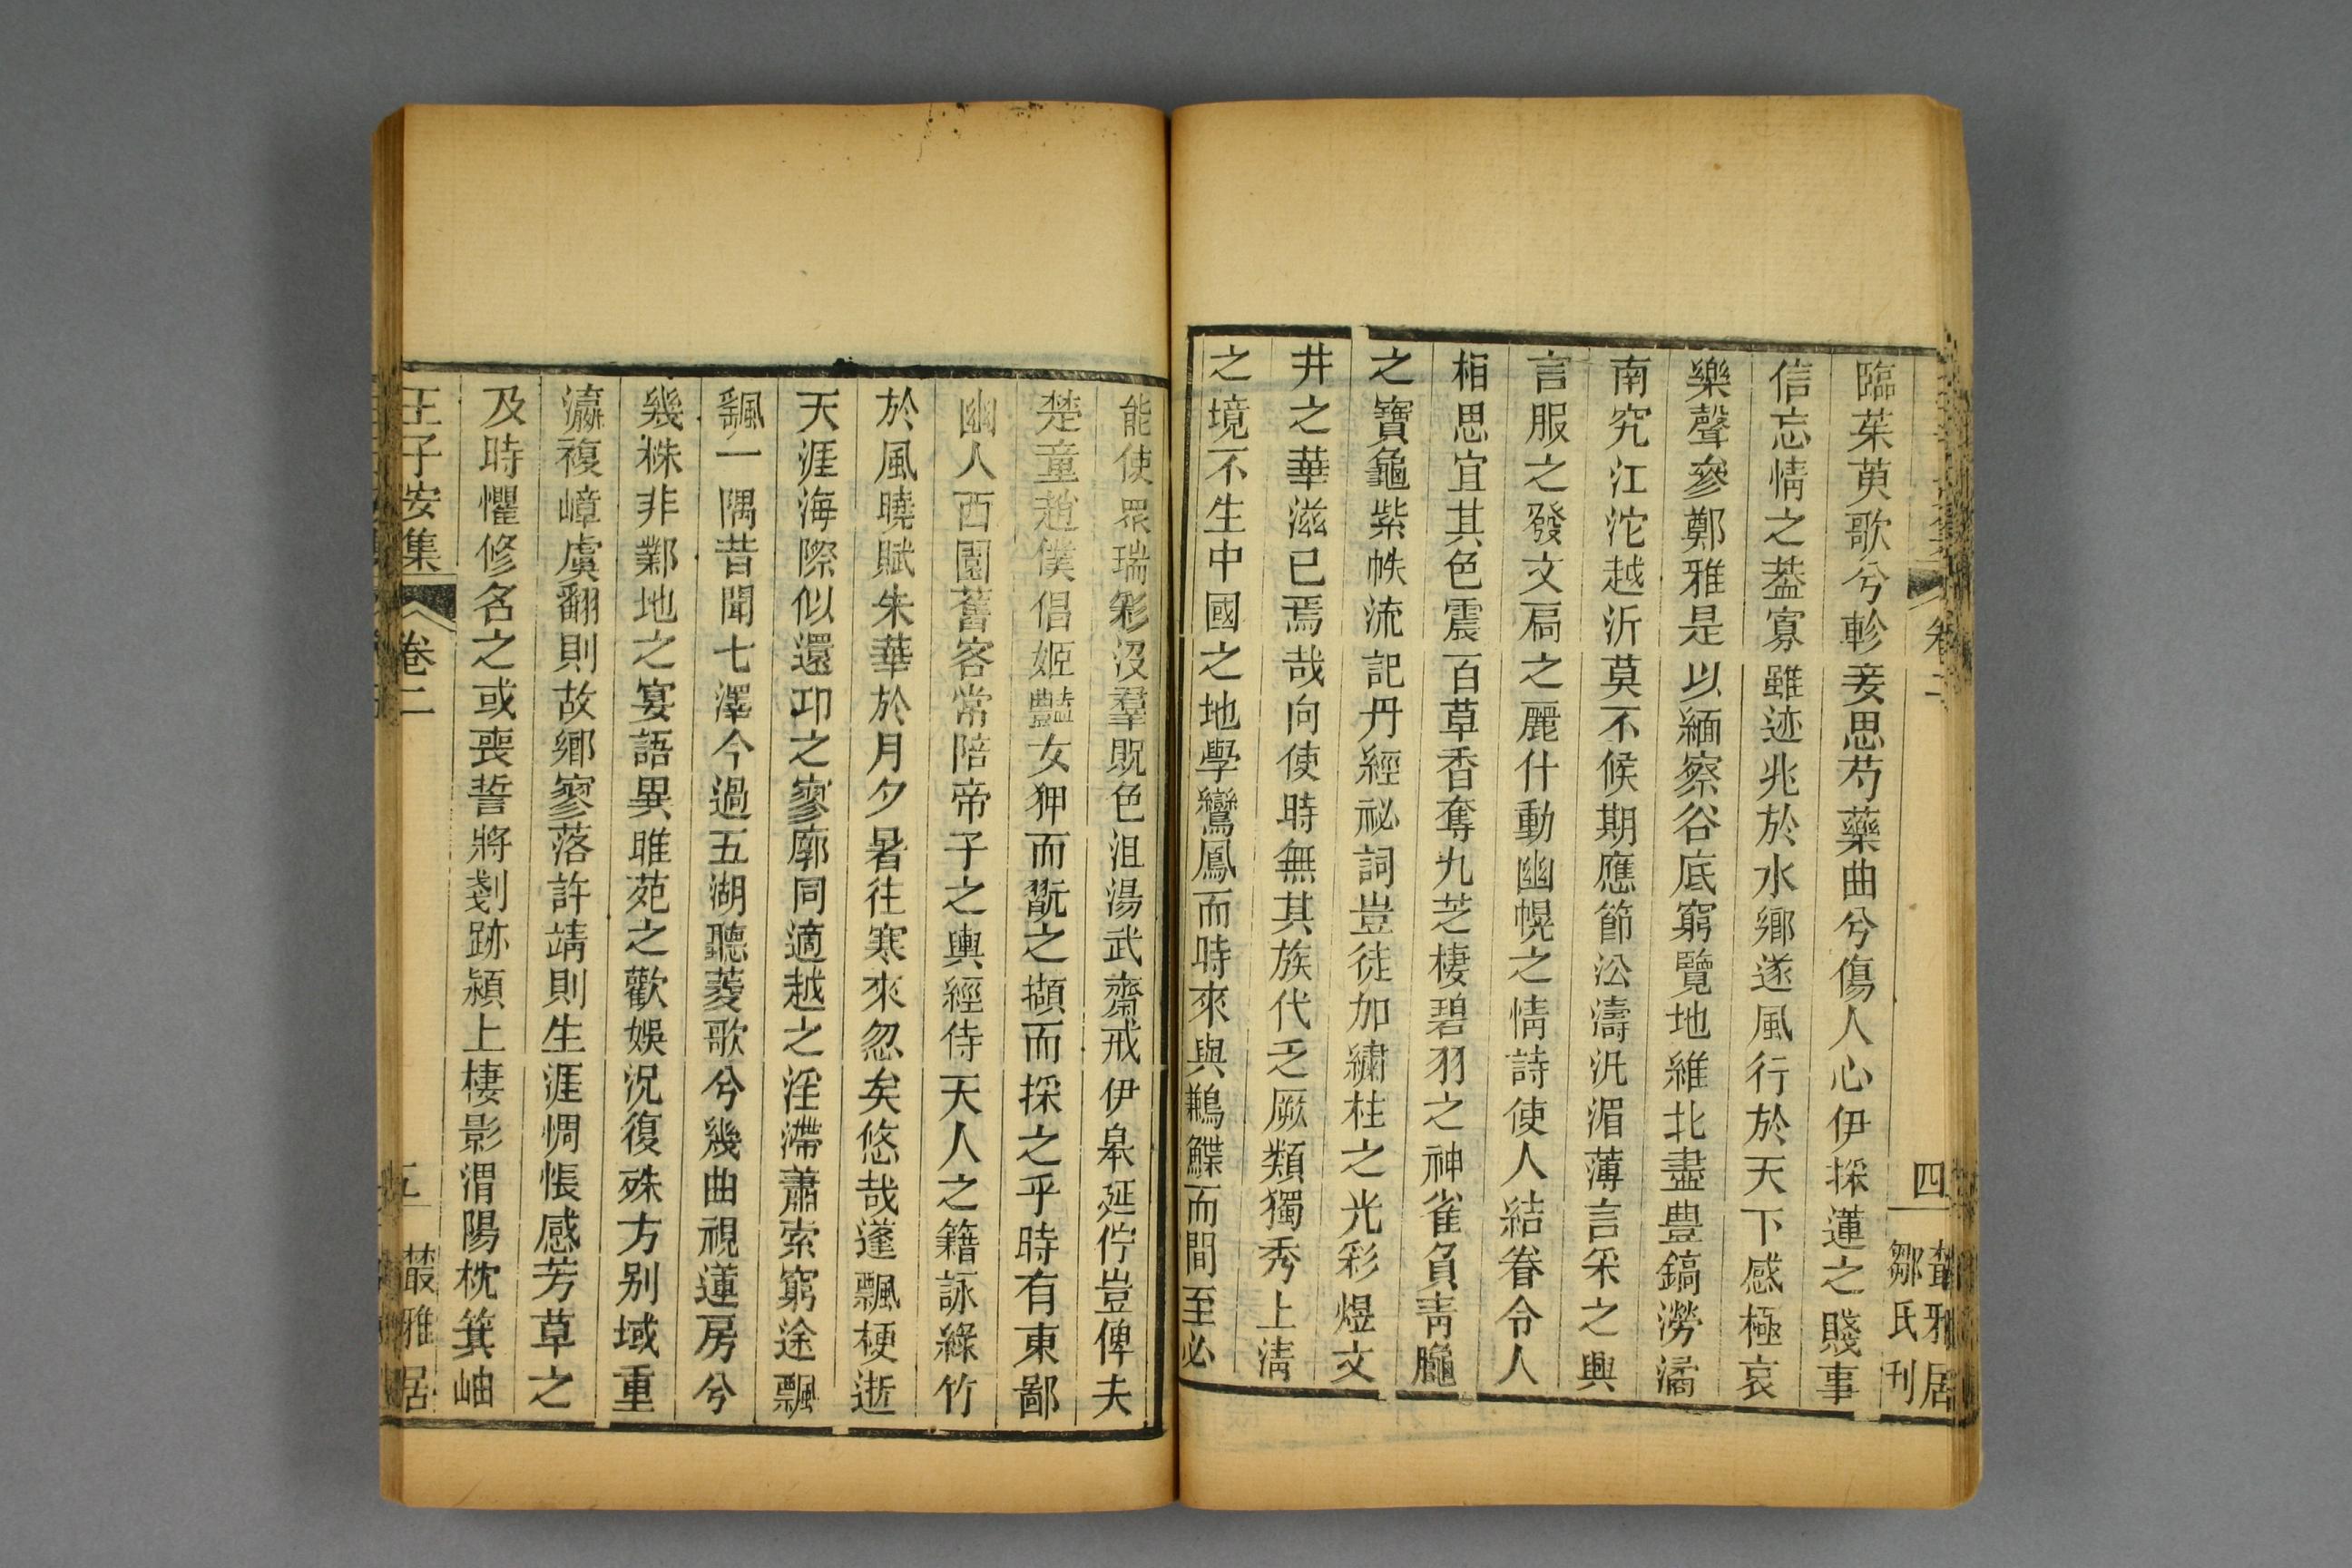 臨茱萸歌兮軫妾思芍藥曲兮傷人心伊採蓮之賤事
信忘情之葢寡雖迹兆於水鄉遂風行於天下感極哀
樂聲參鄭雅是以緬察谷底窮覽地維北盡豊鎬澇潏
南究江沱越沂莫不候期應節㳂濤汎湄薄言采之興
言服之發文扄之麗什動幽幌之情詩使人結眷令人
相思宜其色震百草香奪九芝棲碧羽之神雀負青龜
之寶龜紫帙流記丹經祕詞豈徒加繡柱之光彩煜文
井之華滋已焉哉向使時無其族代乏厥類獨秀上淸
之境不生中國之地學鸞鳳而時來與鶼鰈而間至必
卷二
四
叢雅居
鄒氏刊
能使眾瑞彩沒羣貺色沮湯武齋戒伊皋延佇豈俾夫
楚童趙僕倡姬豔女狎而翫之擷而採之乎時有東鄙
幽人西園舊客常陪帝子之輿經侍天人之籍詠綠竹
於風曉賦朱華於月夕暑往寒來忽矣悠哉蓬飄梗逝
天涯海際似還卭之寥廓同適越之淫滯蕭索窮途飄
颻一隅昔聞七澤今過五湖聽菱歌兮幾曲視蓮房兮
幾株非鄴地之宴語異睢苑之歡娛況復殊方別域重
瀛複嶂虞翻則故鄉寥落許靖則生涯惆悵感芳草之
及時懼修名之或喪誓將剗跡潁上棲影渭陽枕箕岫
王子安集
卷二
五
叢雅居